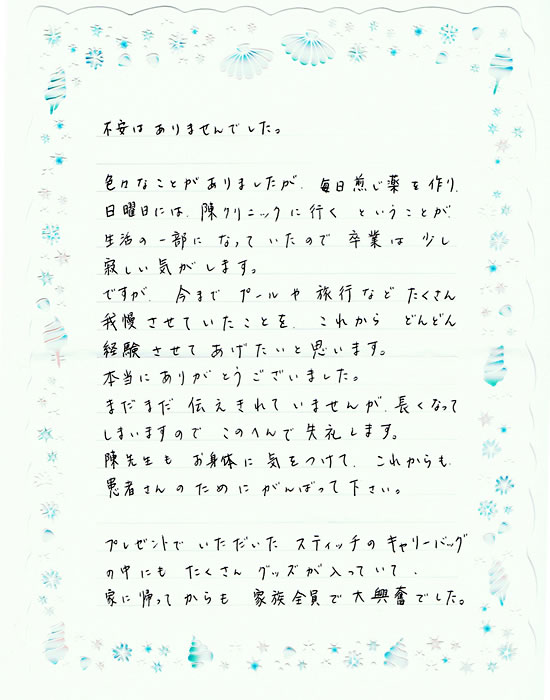 不安はありませんでした。
色々なことがありましたが、毎日煎じ薬を作り、
日曜日には、陳クリニックに行く ということが、
生活の一部に なって いたので 卒業は 少し
寂しい気がします。
ですが、今まで プールや 旅行など たくさん
我慢させていたことを、これから どんどん
経験させて あげたいと思います。
本当にありがとうございました。
まだまだ 伝えきれて いませんが、長くなって
しまいますので このへんで失礼します。
陳先生も お身体に 気をつけて、これからも、
患者さんのために がんばって下さい。
プレゼントで いただいた スティッチのキャリーバッグ
の中にも たくさん グッズが入っていて、
家に帰ってからも 家族全員で大興奮でした。